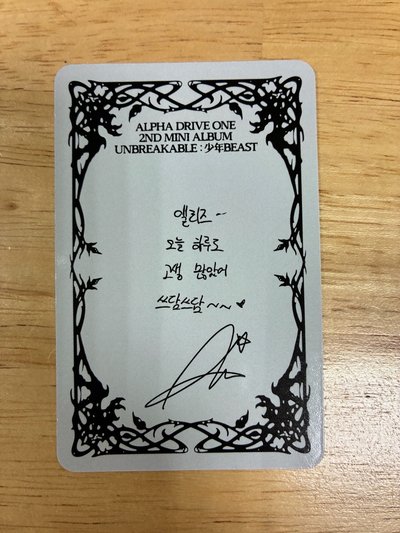 ALPHA DRIVE ONE
2ND MINI ALBUM
UNBREAKABLE : 少年BEAST
앨리즈~
오늘 하루도
고생 많았어
쓰담쓰담~~♥